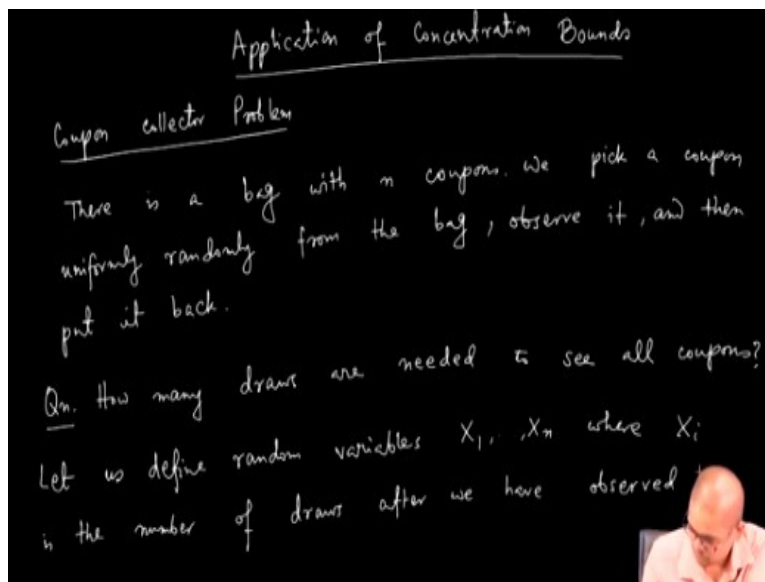 Application of Concentration Bounds
Coupon collector Problem
There is a bag with n coupons. We pick a coupon
uniformly randomly from the bag, observe it, and then
put it back.
Qn. How many draws are needed to see all coupons?
Let us define random variables X₁, .., Xₙ where Xᵢ
is the number of draws after we have observed